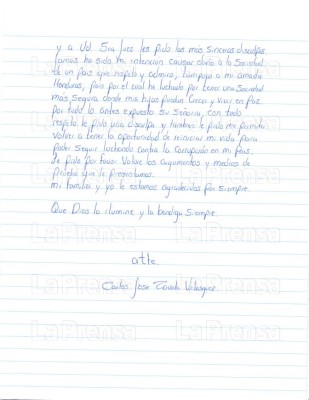 y a Ud. Sra Juez les pido las más sinceras disculpas
Jamas ha sido mi intencion causar daño a la Sociedad
de un pais que respeto y admiro, tampoco a mi amada
Honduras, pais por el cual he luchado por tener una Sociedad
mas Segura donde mis hijos puedan Crecer y vivir en Paz
por todo lo antes expuesto Su Señoria, con todo
respeto le pido una disculpa y tambien le pido me permita
Volver a tener la oportunidad de reiniciar mi vida para
poder Seguir luchando contra la Corrupción en mi pais.
Le pido por favor Valore los argumentos y medios de
prueba que le presentamos.
mi familia y yo le estamos agradecidos por siempre.
Que Dios la ilumine y la bendiga Siempre.
atte.
Carlos Jose Zavala Velasquez
LaPrensa
LaPrensa
LaPrensa
LaPrensa
LaPrensa
LaPrensa
LaPrensa
LaPrensa